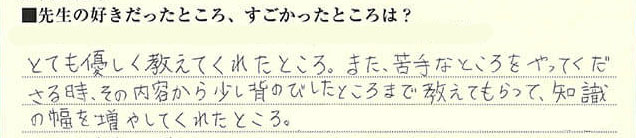 ■先生の好きだったところ、すごかったところは？
とても優しく教えてくれたところ。また、苦手なところをやってくだ
さる時、その内容から少し背のびしたところまで教えてもらって、知識
の幅を増やしてくれたところ。